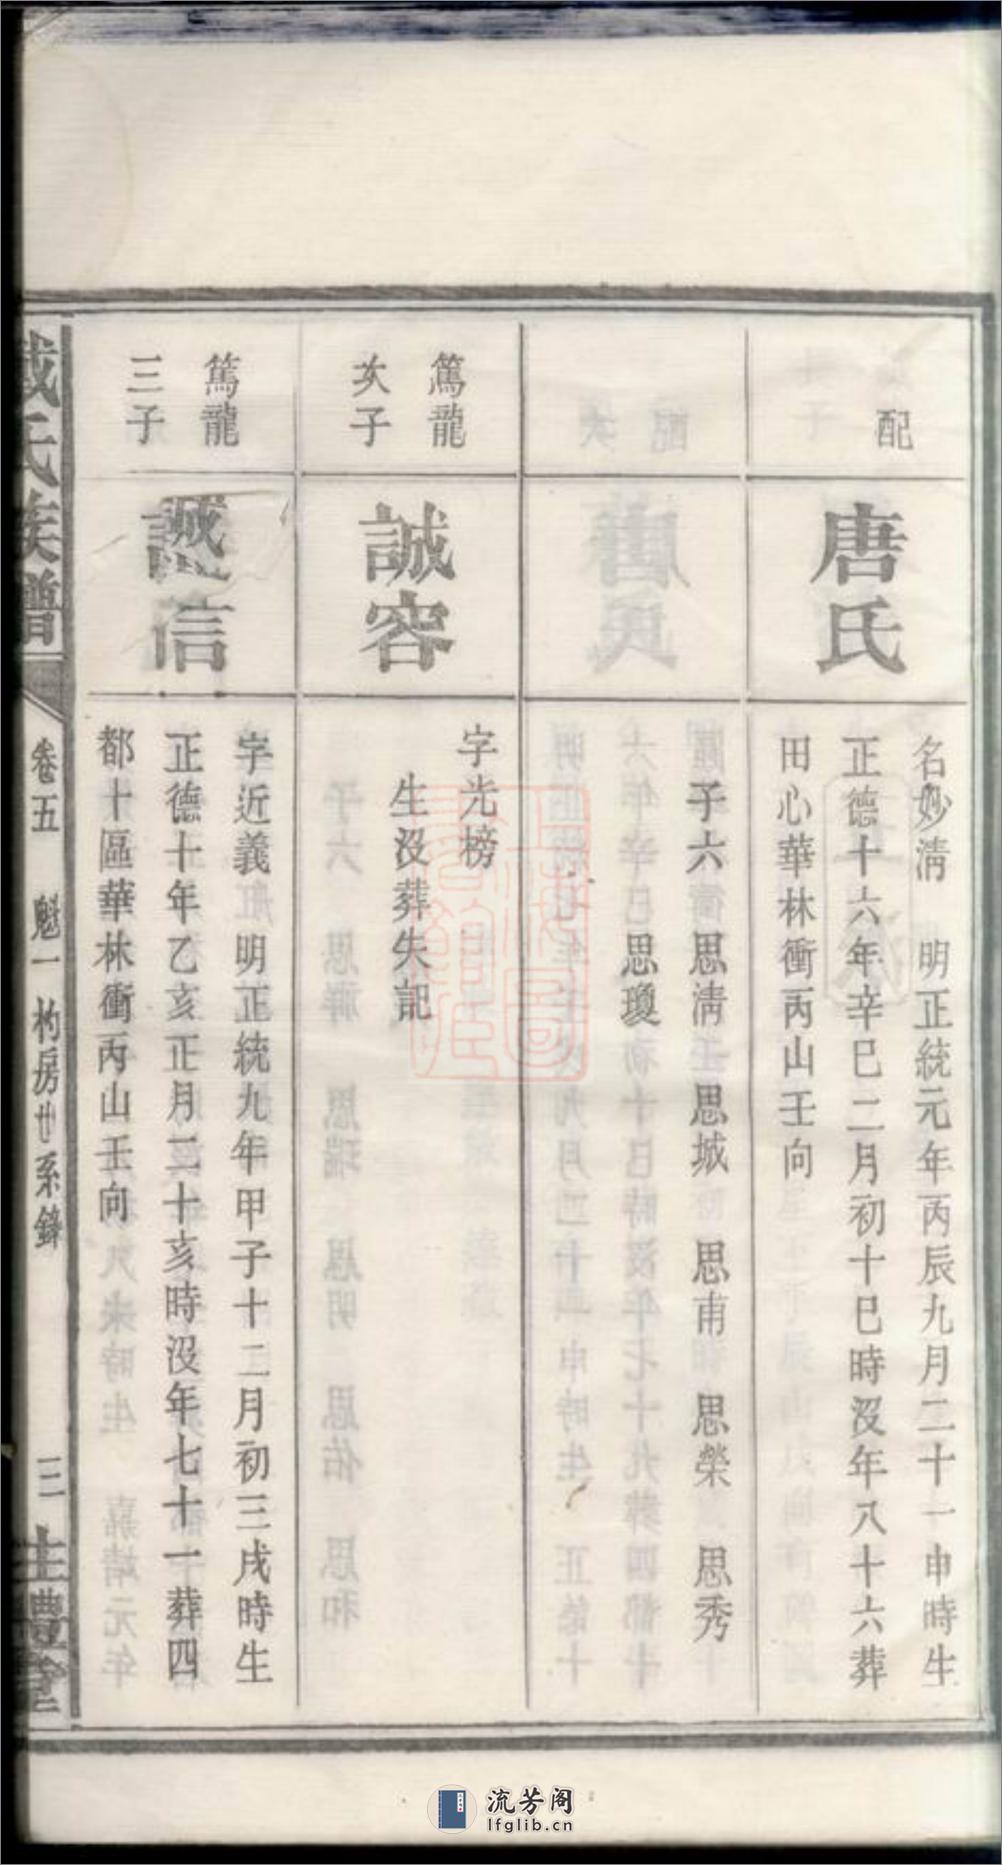 配
唐氏
名妙淸　明正統元年丙辰九月二十一申時生
正德十六年辛巳二月初十巳時沒年八十六葬
田心華林衝丙山壬向
子六　思淸　思城　思甫　思榮　思秀
思瓊
篤龍
次子
誠容
字光榜
生沒葬失記
篤龍
三子
誠信
字近義　明正統九年甲子十二月初三戌時生
正德十年乙亥正月二十亥時沒年七十一葬四
都十區華林衝丙山壬向
戴氏族譜
卷五　魁一杓房世系錄
三　生禮堂
流芳阁
lfglib.cn